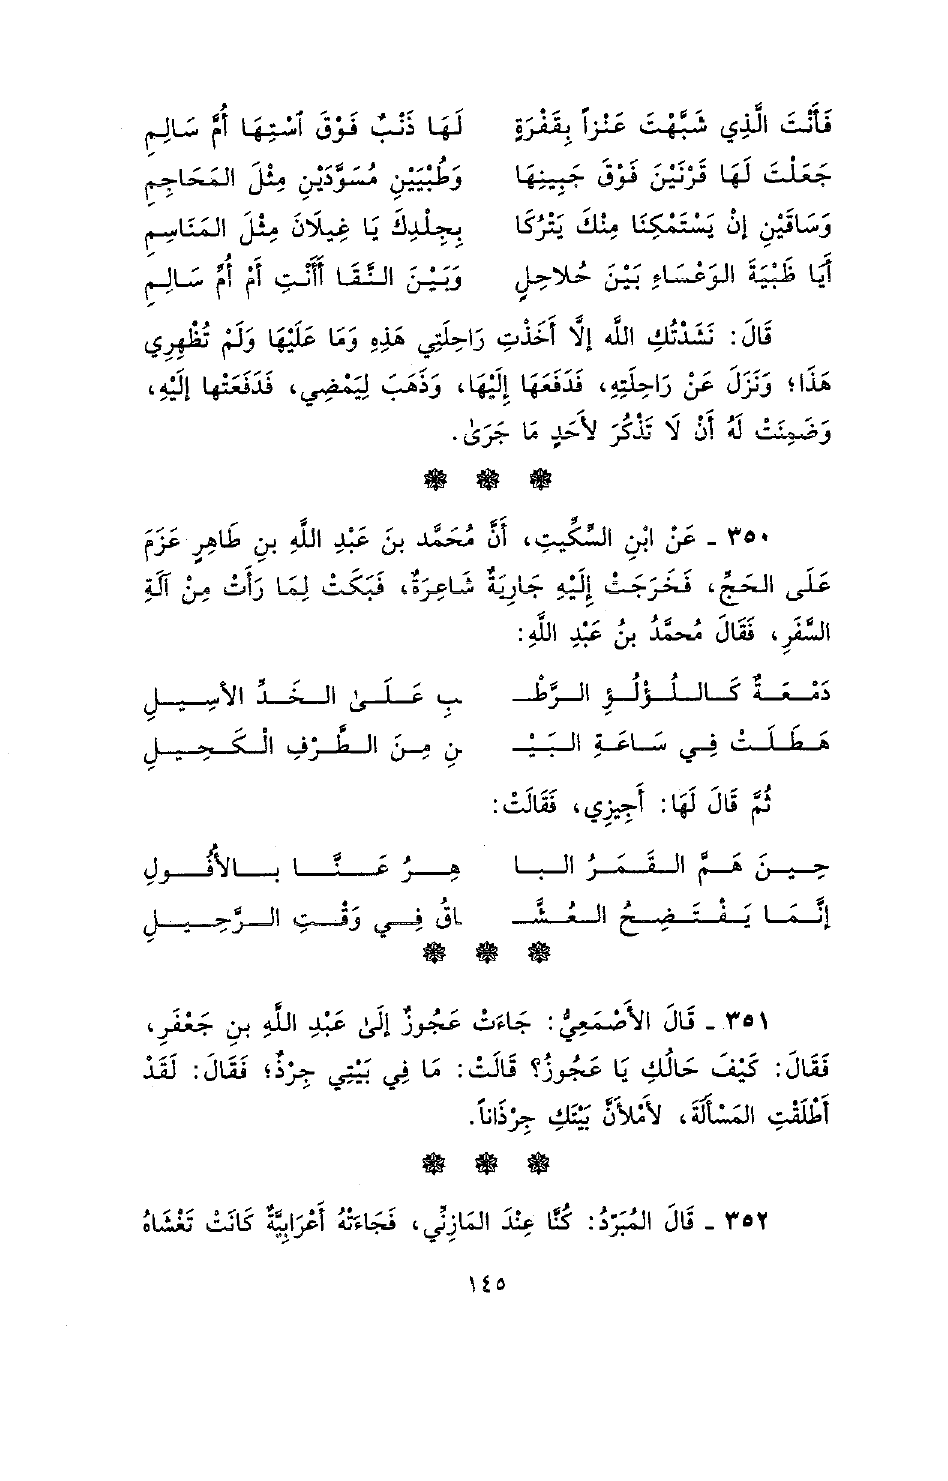 فَأَنْتَ الَّذِي شَبَّهْتَ عَنْزاً بِقَفْرَةٍ لَهَا ذَنْبٌ فَوْقَ آسْتِهَا أُمَّ سَالِمِ
جَعَلْتَ لَهَا قَرْنَيْنِ فَوْقَ جَبِينِهَا وَطُبْيَيْنِ مُسْوَدَّيْنِ مِثْلَ المَحَاجِمِ
وَسَاقَيْنِ إِنْ يَسْتَمْكِنَا مِنْكَ يَتْرُكَا بِجِلْدِكَ يَا غَيلَانَ مِثْلَ المَنَاسِمِ
أَيَا ظَبْيَةَ الوَعْسَاءِ بَيْنَ حُلاَحِلٍ وَبَيْنَ النَّقَا أَأَنْتِ أَمْ أُمُّ سَالِمِ
قَالَ: نَشَدْتُكِ اللَّه إِلَّا أَخَذْتِ رَاحِلَتِي هَذِهِ وَمَا عَلَيْهَا وَلَمْ تُظْهِرِي
هَذَا؛ وَنَزَلَ عَنْ رَاحِلَتِهِ، فَدَفَعَهَا إِلَيْهَا، وَذَهَبَ لِيَمْضِي، فَدَفَعَتْها إِلَيْهِ،
وَضَمِنَتْ لَهُ أَنْ لَا تَذْكُرَ لأَحَدٍ مَا جَرَىٰ.
٣٥٠ ـ عَنْ ابْنِ السُّكِّيتِ، أَنَّ مُحَمَّد بنَ عَبْدِ اللَّهِ بنِ طَاهِرٍ عَزَمَ
عَلَى الحَجِّ، فَخَرَجَتْ إِلَيْهِ جَارِيَةٌ شَاعِرَةٌ، فَبَكَتْ لِمَا رَأَتْ مِنْ آلَةِ
السَّفَرِ، فَقَالَ مُحمَّدُ بنُ عَبْدِ اللَّهِ:
دَمْعَةٌ كَاللُؤْلُؤِ الرَّطْـ ـبِ عَلَىٰ الخَدِّ الأَسِيلِ
هَطَلَتْ فِي سَاعَةِ البَيْـ ـنِ مِنَ الطَّرْفِ الْكَحِيلِ
ثُمَّ قَالَ لَهَا: أَجِيزِي، فَقَالَتْ:
حِينَ هَمَّ القَمَرُ البَا هِرُ عَنَّا بِالأُفُولِ
إِنَّمَا يَفْتَضِحُ العُشَّـ ـاقُ فِي وَقْتِ الرَّحِيلِ
٣٥١ ـ قَالَ الأَصْمَعِيُّ: جَاءَتْ عَجُوزٌ إِلَىٰ عَبْدِ اللَّهِ بنِ جَعْفَرٍ،
فَقَالَ: كَيْفَ حَالُكِ يَا عَجُوزُ؟ قَالَتْ: مَا فِي بَيْتِي جِرْذٌ؛ فَقَالَ: لَقَدْ
أَطْلَقْتِ المَسْأَلَةَ، لأَمْلأَنَّ بَيْتَكِ جِرْذَاناً.
٣٥٢ ـ قَالَ المُبَرّدُ: كُنَّا عِنْدَ المَازِنِّي، فَجَاءَتْهُ أَعْرَابِيَّةٌ كَانَتْ تَغْشَاهُ
١٤٥